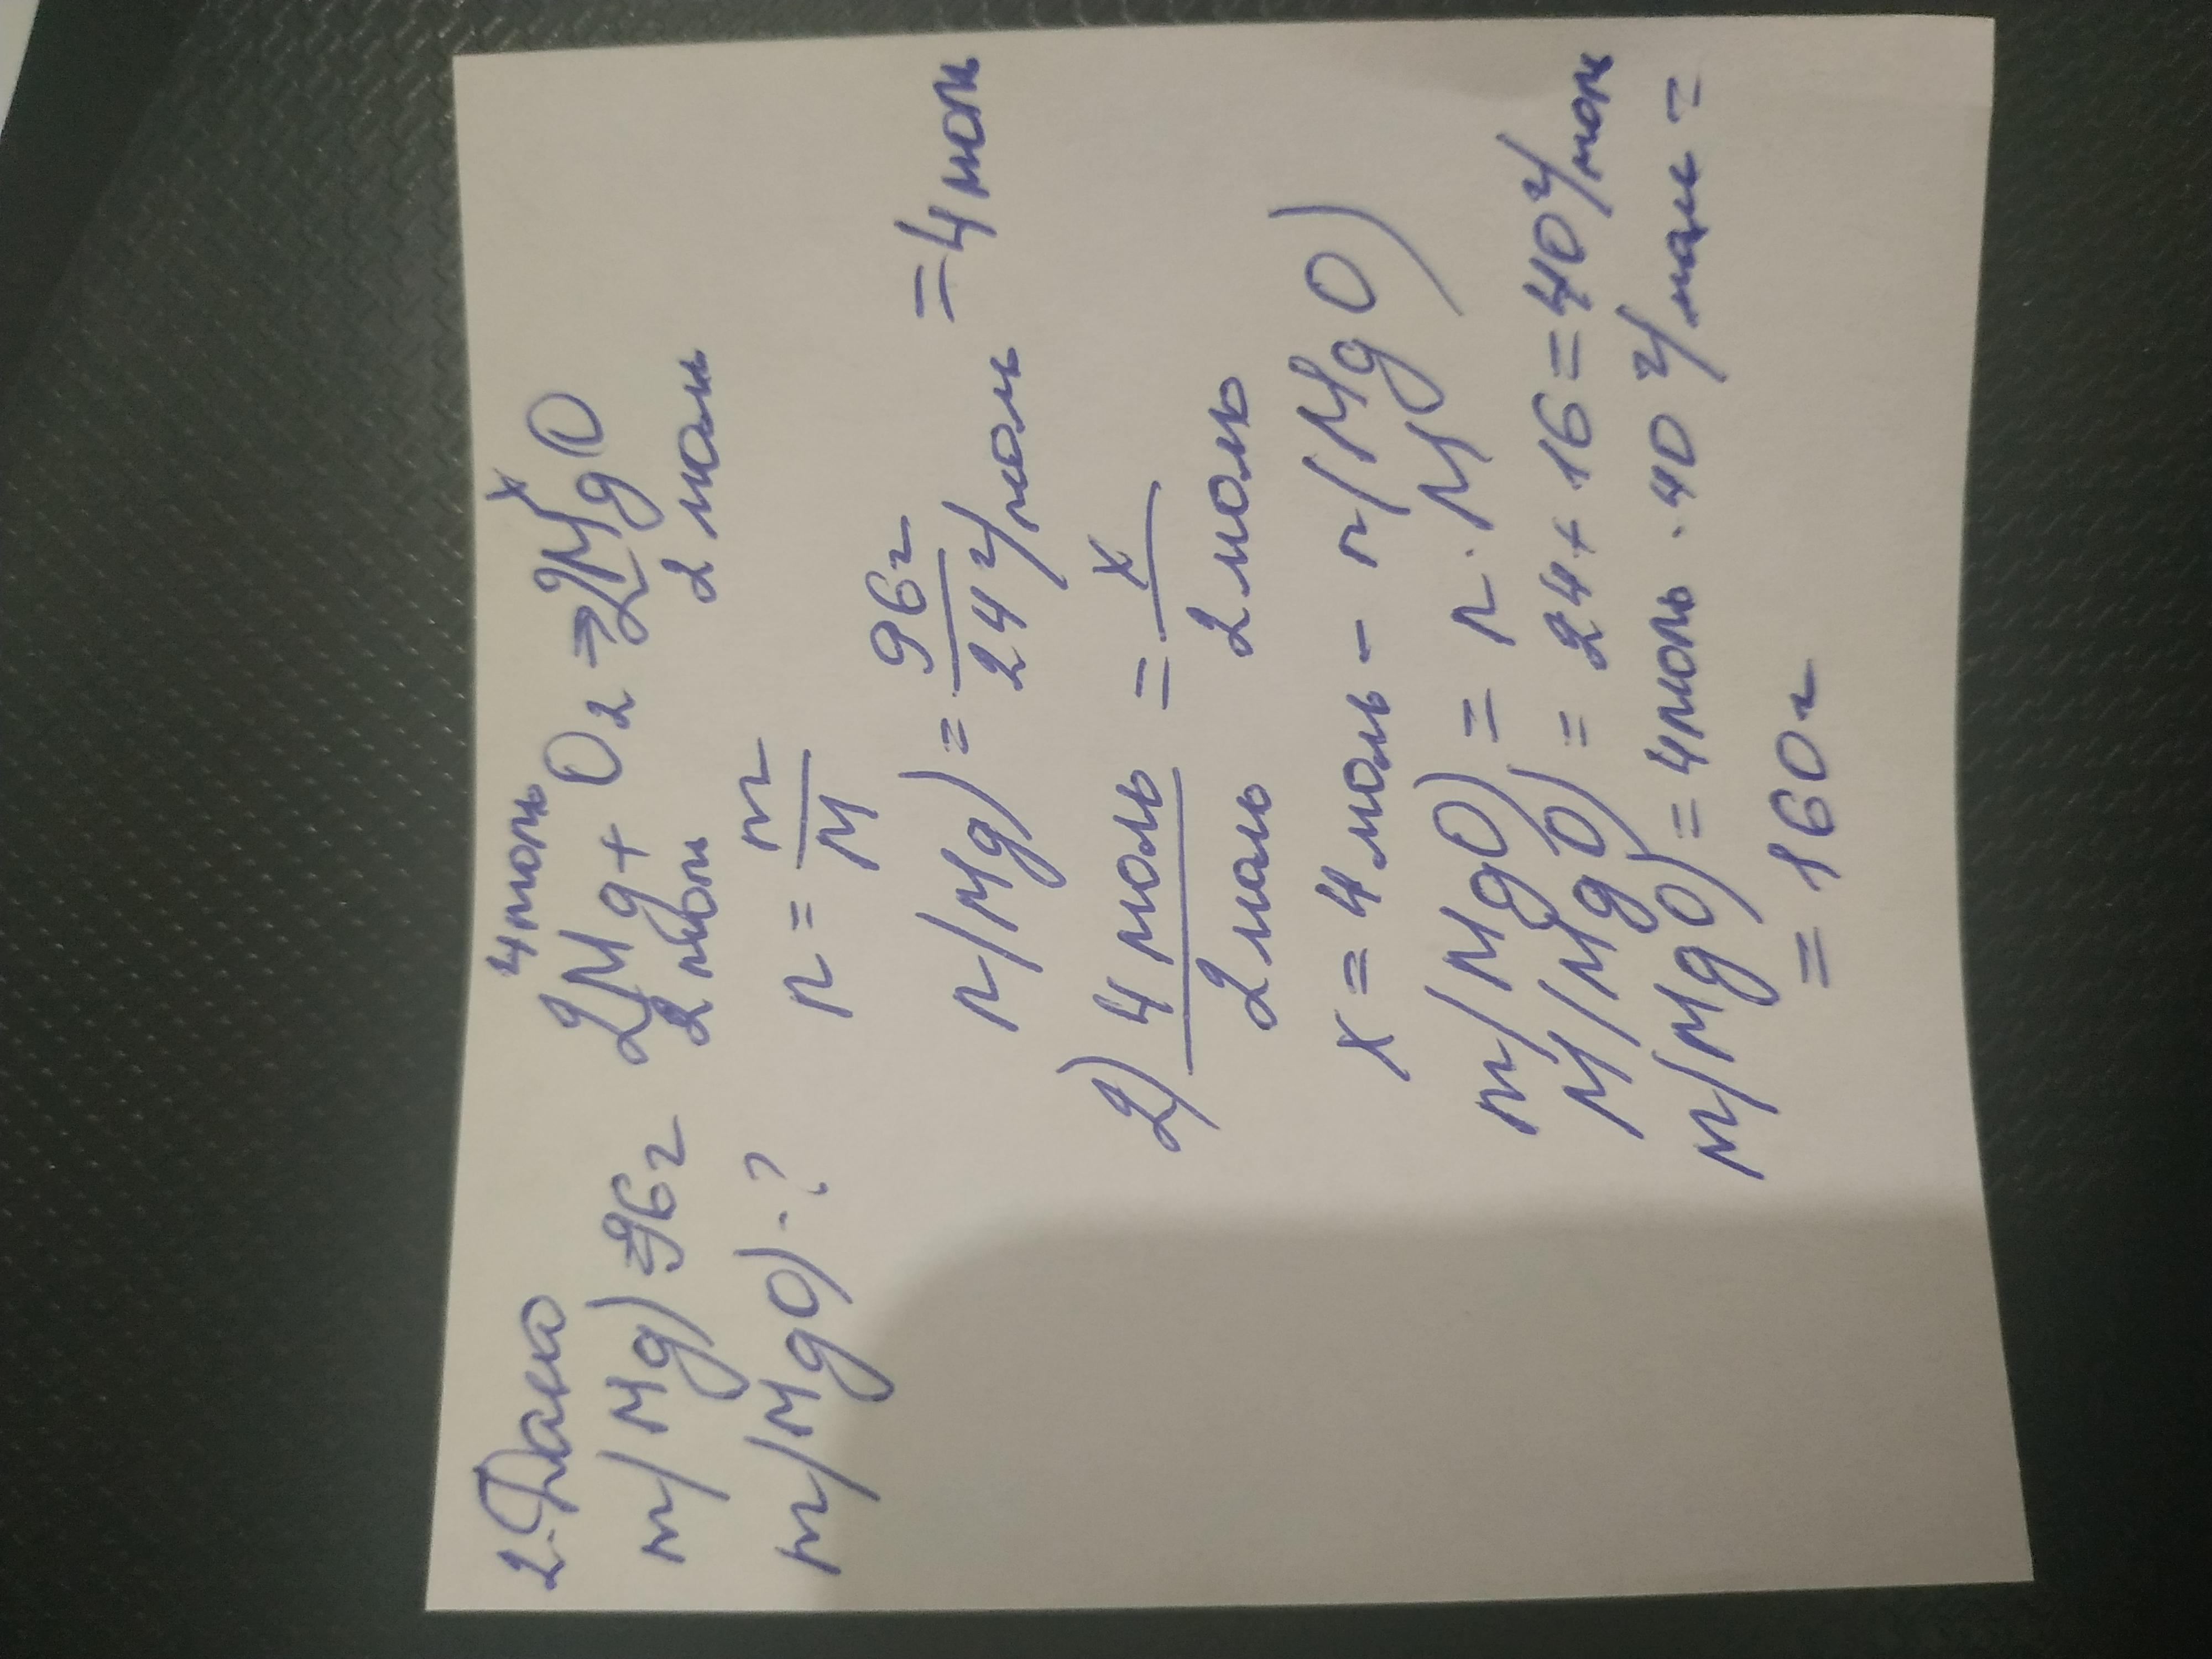 2. Дано
m(Mg)=96г
m(MgO)-?
4моль x
2Mg + O₂ = 2MgO
2 моль 2 моль
n = m/M
n(Mg) = 96г/24 г/моль = 4 моль
2) 4 моль/2 моль = x/2 моль
x = 4 моль - n(MgO)
m(MgO) = n · M
M(MgO) = 24 + 16 = 40 г/моль
m(MgO) = 4моль · 40 г/моль =
= 160 г